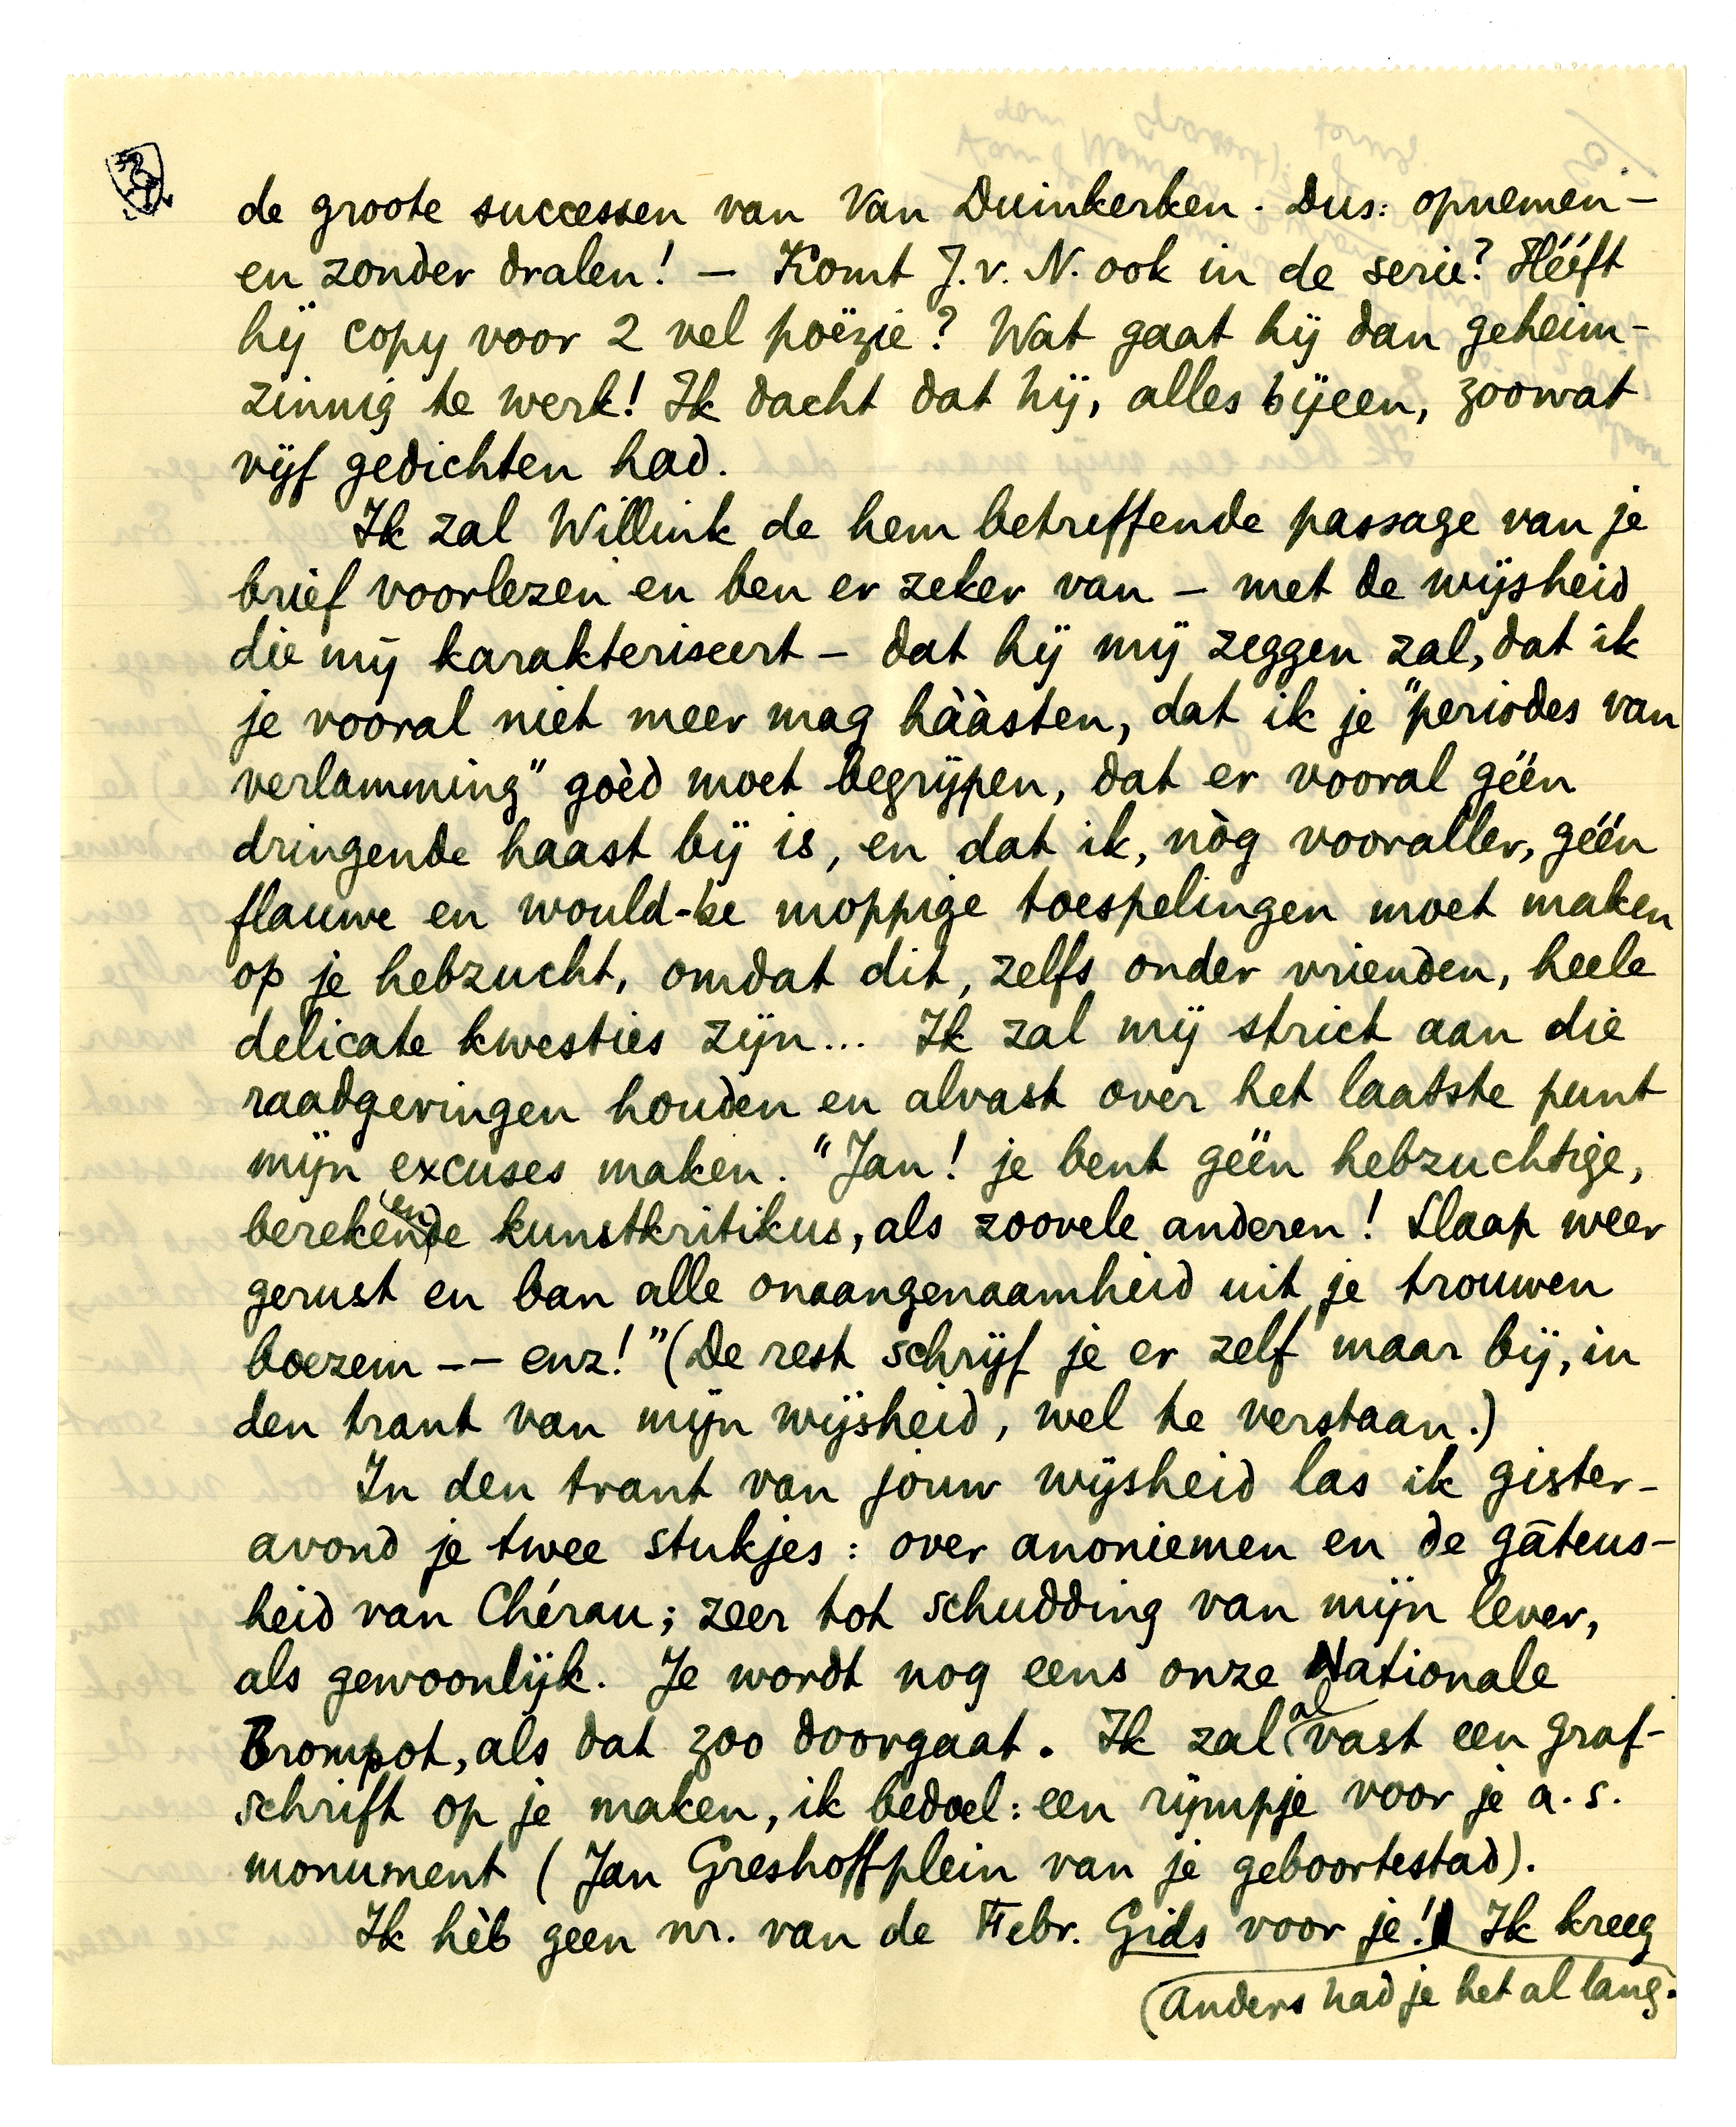 de groote successen van Van Duinkerken. Dus: opnemen –
en zonder dralen! – Komt J. v. N. ook in de serie? Hééft
hij copy voor 2 vel poëzie? Wat gaat hij dan geheim-
zinnig te werk! Ik dacht dat hij, alles bijeen, zoowat
vijf gedichten had.
Ik zal Willink de hem betreffende passage van je
brief voorlezen en ben er zeker van – met de wijsheid
die mij karakteriseert – dat hij mij zeggen zal, dat ik
je vooral niet meer mag hààsten, dat ik je "periodes van
verlamming" goèd moet begrijpen, dat er vooral géén
dringende haast bij is, en dat ik, nòg vooraller, géén
flauwe en would-be moppige toespelingen moet maken
op je hebzucht, omdat dit, zelfs onder vrienden, heele
delicate kwesties zijn... Ik zal mij strict aan die
raadgevingen houden en alvast over het laatste punt
mijn excuses maken. "Jan! je bent géén hebzuchtige,
berekenende kunstkritikus, als zoovele anderen! Slaap weer
gerust en ban alle onaangenaamheid uit je trouwen
boezem –– enz!" (De rest schrijf je er zelf maar bij, in
den trant van mijn wijsheid, wel te verstaan.)
In den trant van jouw wijsheid las ik gister-
avond je twee stukjes: over anoniemen en de gâteus-
heid van Chérau; zeer tot schudding van mijn lever,
als gewoonlijk. Je wordt nog eens onze Nationale
Brompot, als dat zoo doorgaat. Ik zal alvast een graf-
schrift op je maken, ik bedoel: een rijmpje voor je a.s.
monument (Jan Greshoffplein van je geboortestad).
Ik hèb geen nr. van de Febr. Gids voor je! Ik kreeg
(Anders had je het al lang.